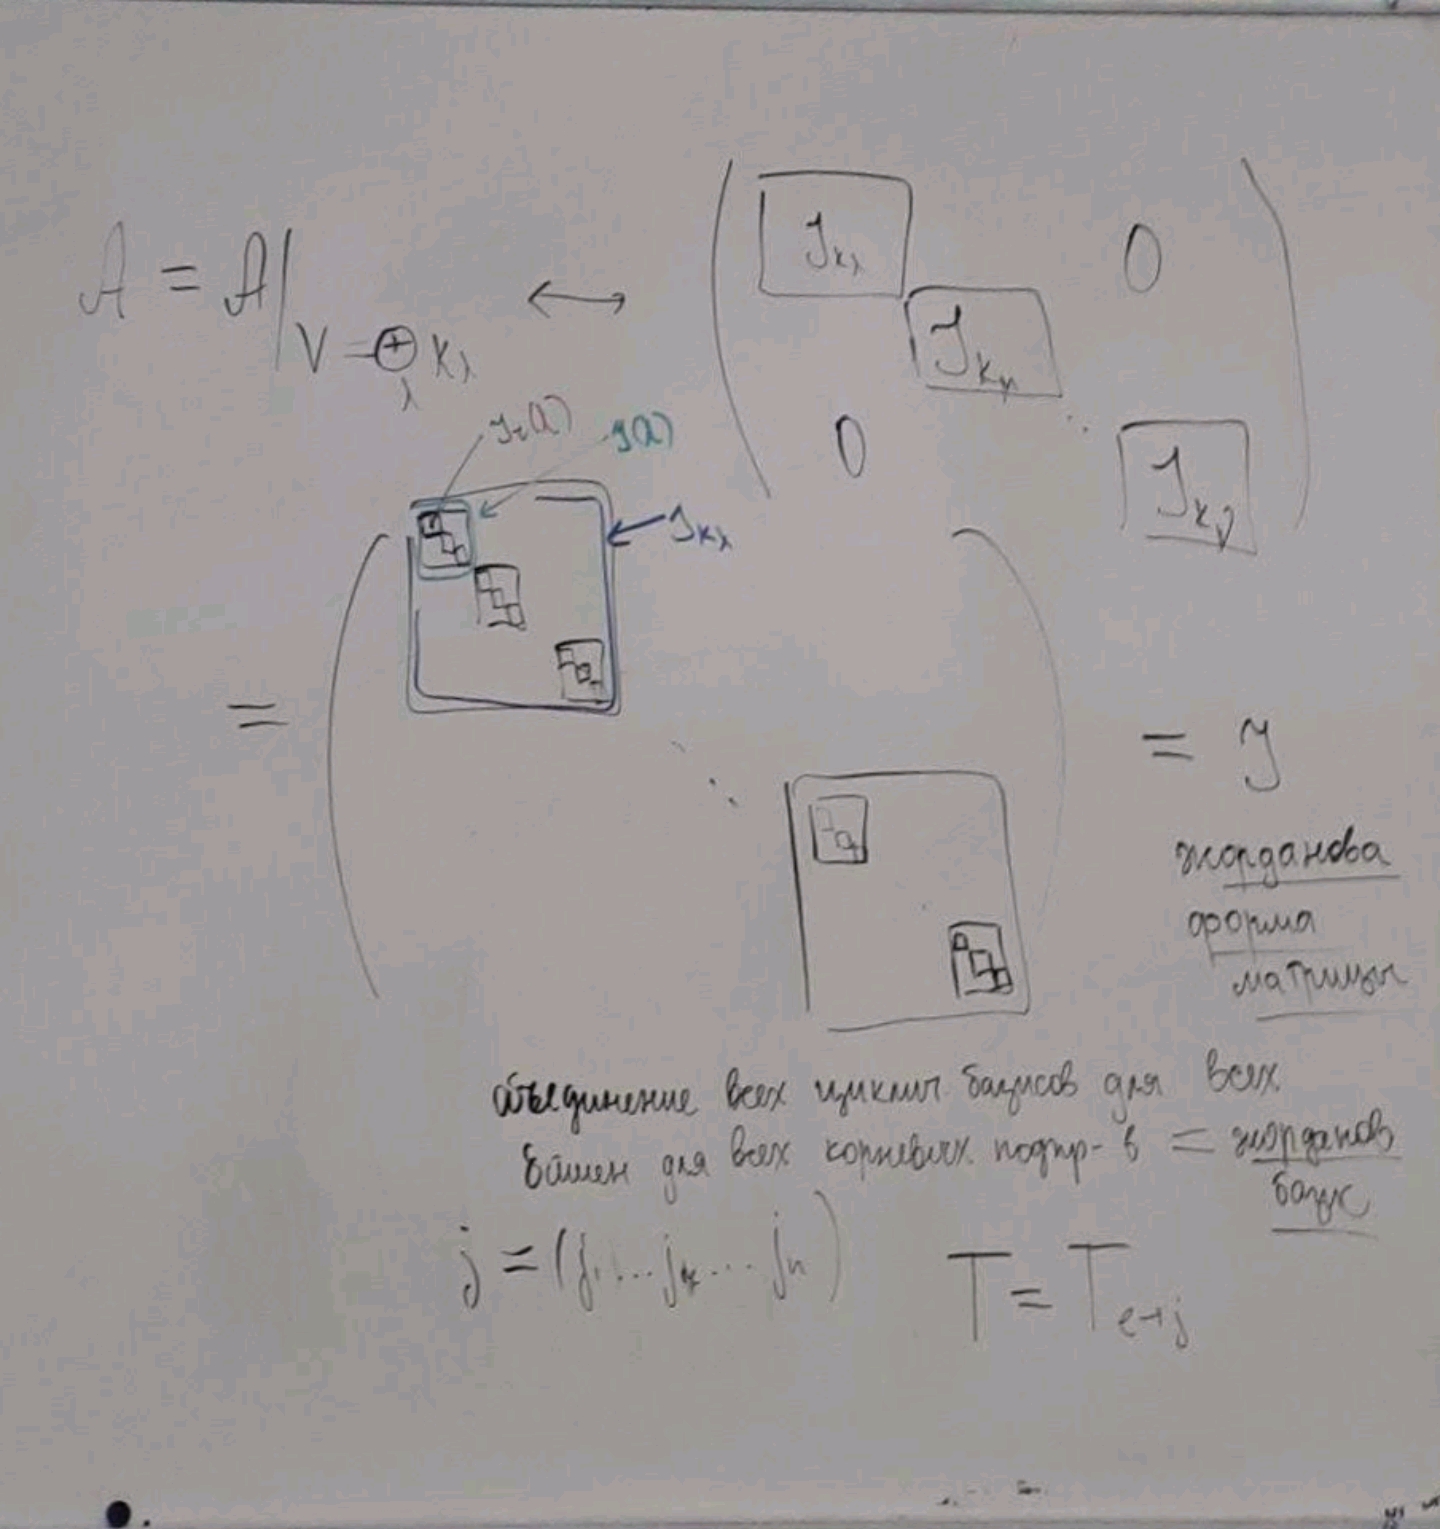 𝒜 = 𝒜|_{V = ⊕_λ K_λ} ↔ ( J_{K_λ} 0
J_{K_μ}
0 ⋱ J_{K_ν} )
J_r(λ) J(λ)
J_{K_λ}
= ( ⋱ ) = J
жорданова
форма
матрицы
объединение всех циклич. базисов для всех
башен для всех корневых подпр-в = жорданов
базис
j = (j_1 ... j_k ... j_n) T = T_{e→j}